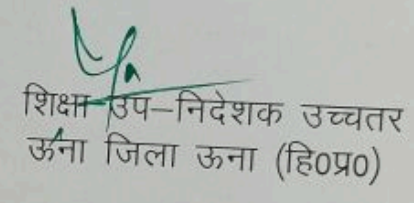 शिक्षा उप-निदेशक उच्चतर
ऊना जिला ऊना (हि०प्र०)